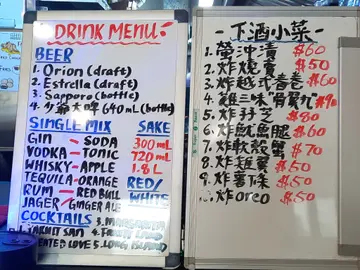 DRINK MENU
BEER
1. Orion (draft)
2. Estrella (draft)
3. Sapporo (bottle)
4. 少爺大啤 640ml (bottle)
SINGLE MIX
SAKE
GIN - SODA 300 mL
VODKA - TONIC 720 mL
WHISKY - APPLE 1.8 L
TEQUILA - ORANGE RED/
RUM - RED BULL WHITE
JAGER GINGER ALE
COCKTAILS
3. MARGARITA
SAN 4.
LOVE 5. LONG ISLAND
下酒小菜
1. $60
2. 炸燒賣 $50
3. 炸越式春卷 $60
4. 雞三味 $90
5. 炸 $80
6. 炸魷魚 $60
7. 炸軟殼蟹 $70
8. 炸雞翼 $50
9. 炸薯條 $50
10. 炸oreo $50